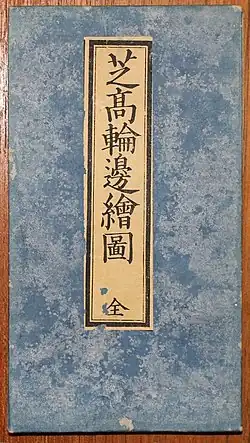 芝髙輪邊繪圖
全